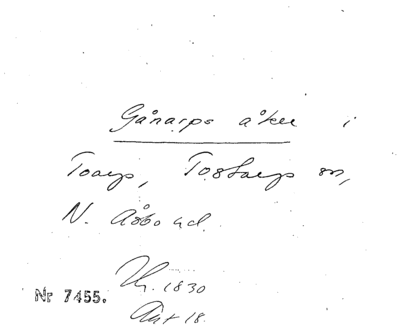 Gånarps åker i
Toarp, Tostarps sn,
N. Åsbo hd.
Nr 7455.
1830
18.